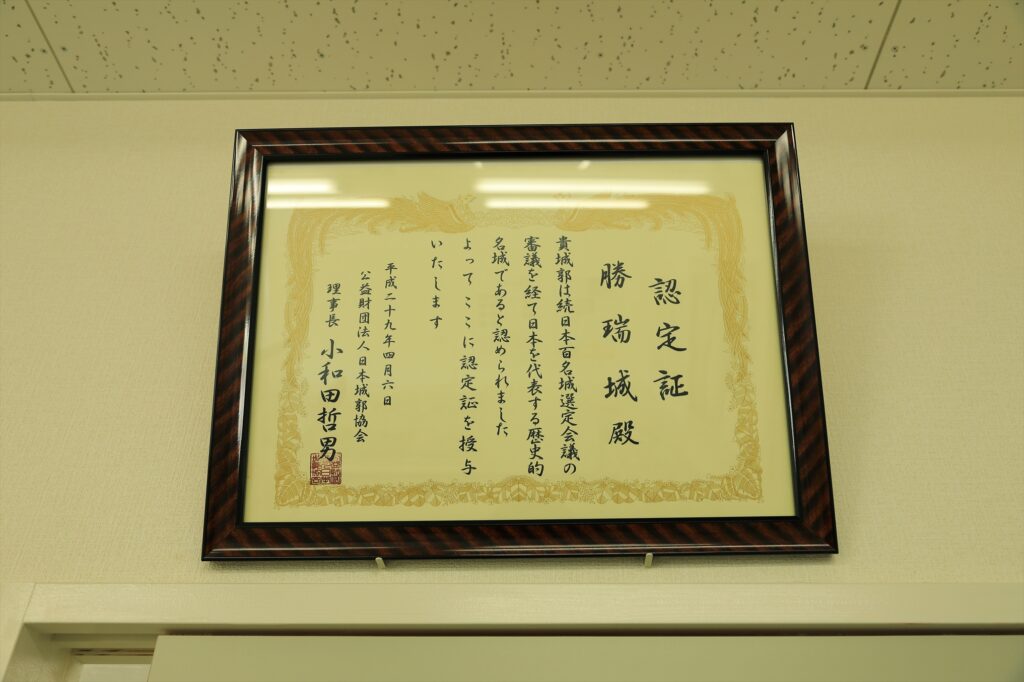 認定証
勝瑞城殿
貴城郭は続日本百名城選定会議の
審議を経て日本を代表する歴史的
名城であると認められました
よってここに認定証を授与
いたします
平成二十九年四月六日
公益財団法人日本城郭協会
理事長 小和田哲男